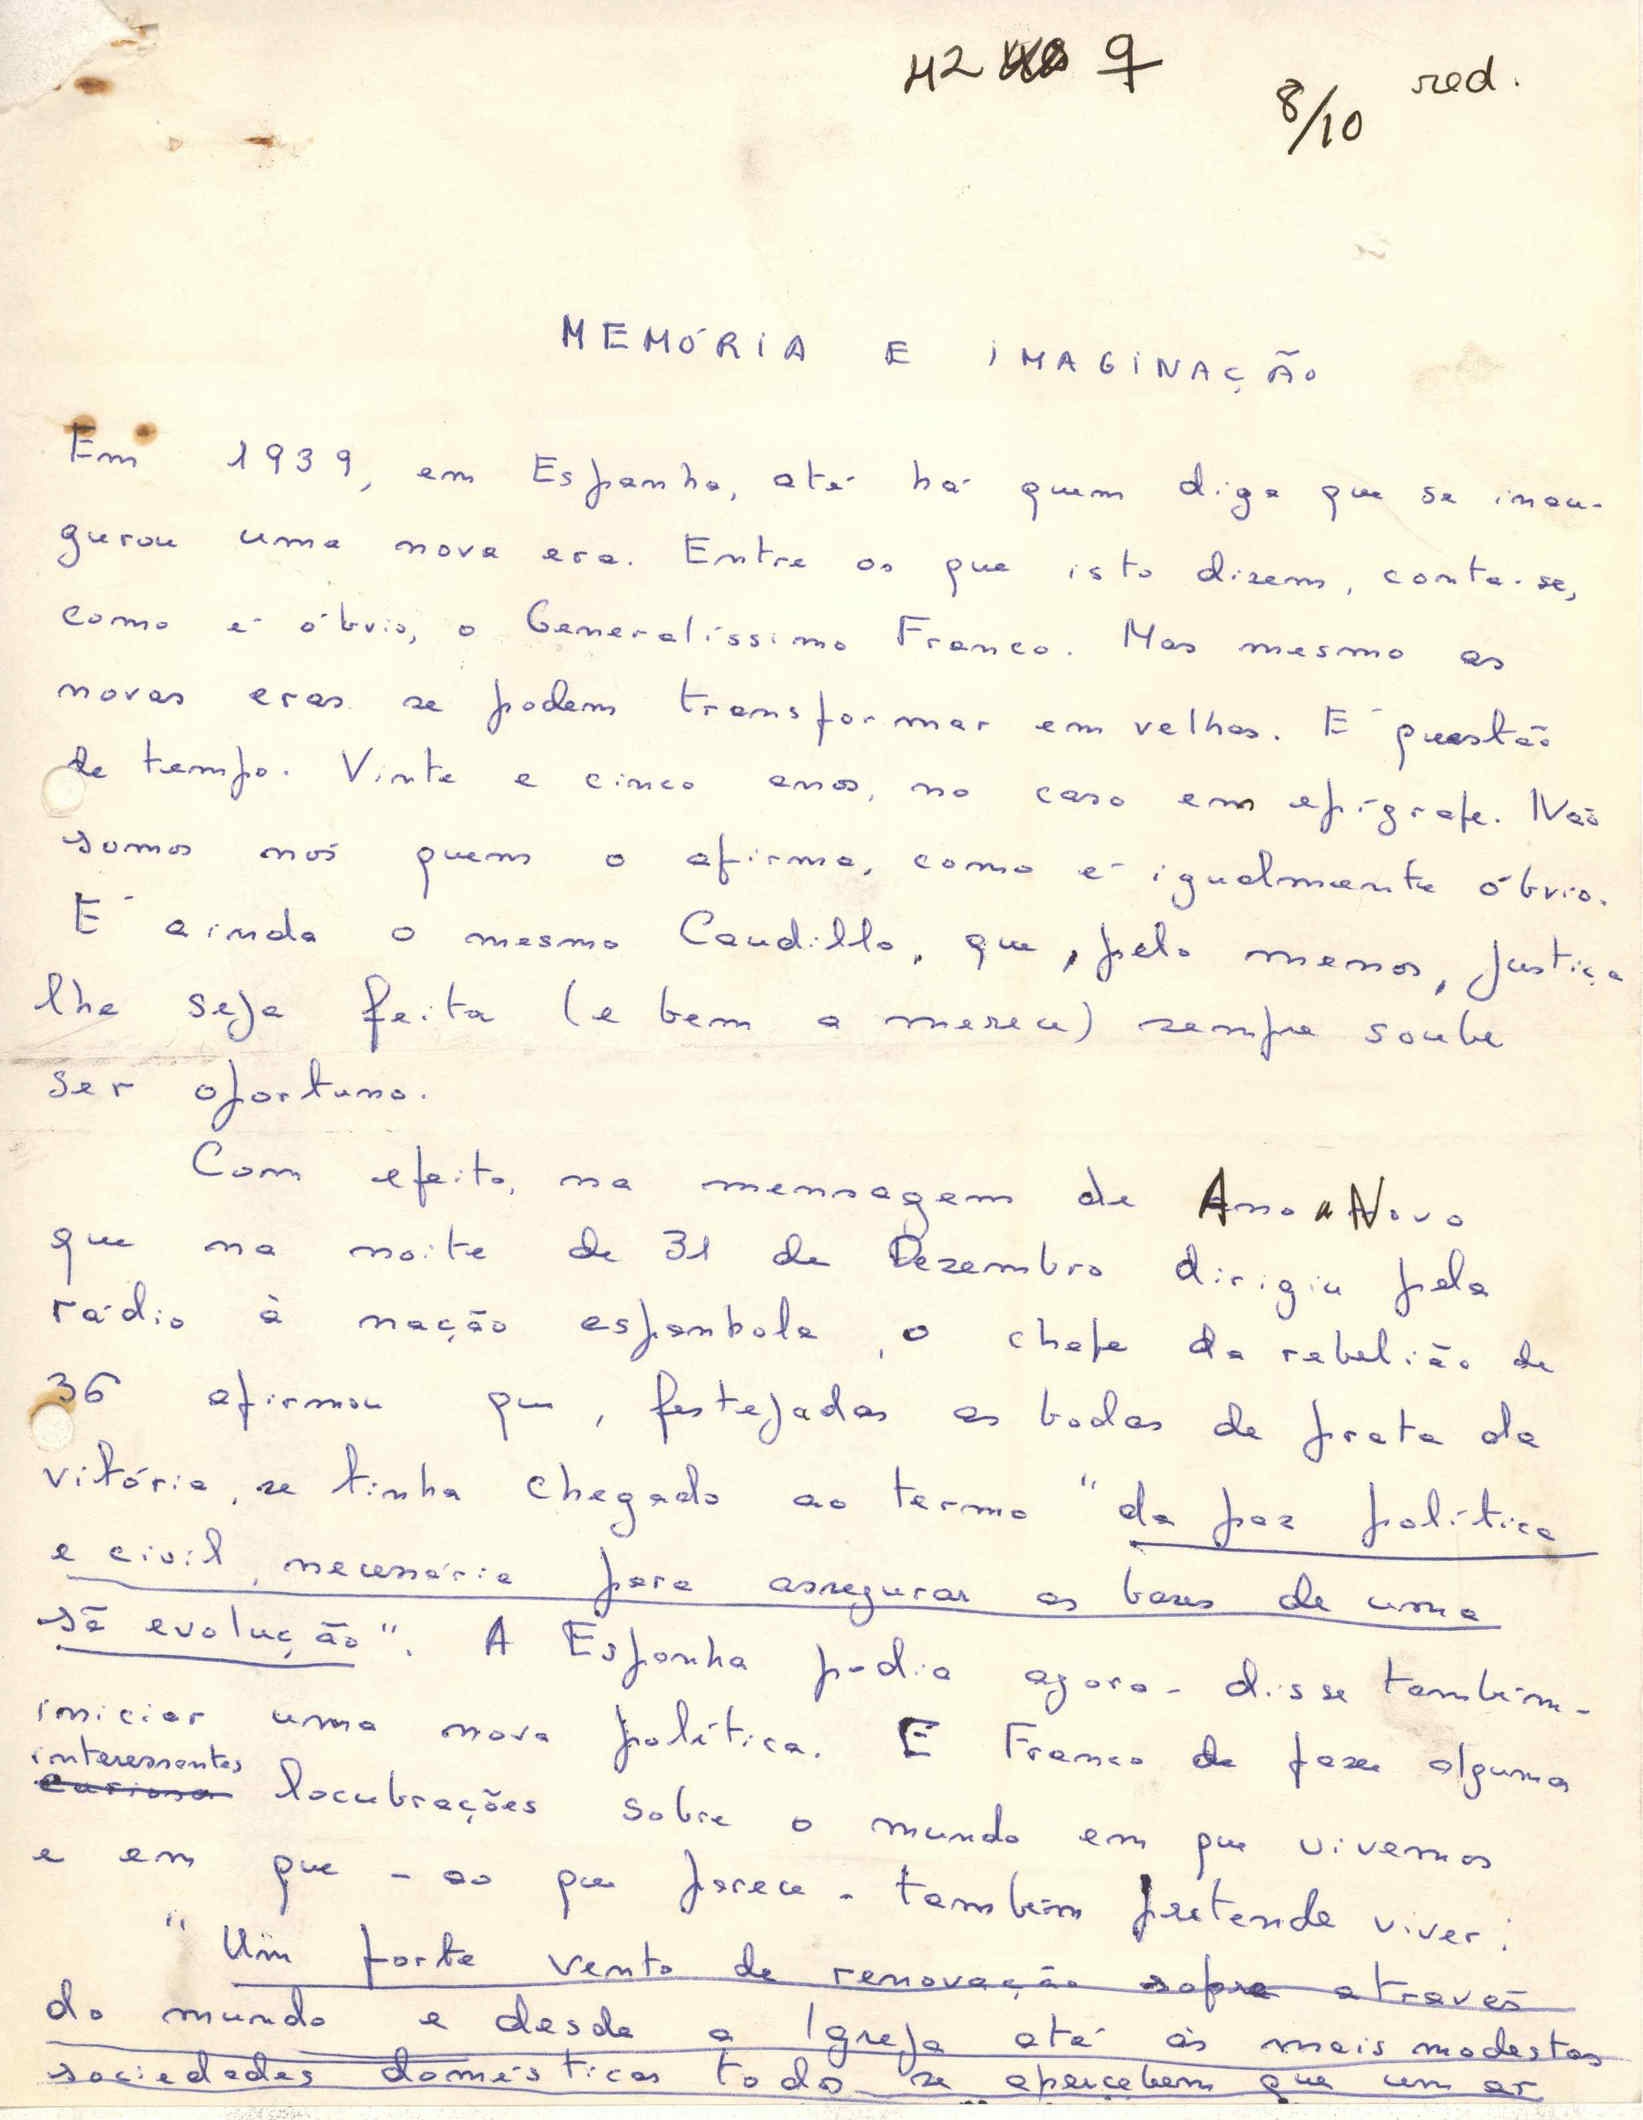 M2 9
8/10 red.
MEMÓRIA E IMAGINAÇÃO
Em 1939, em Espanha, até há quem diga que se inau-
gurou uma nova era. Entre os que isto dizem, conta-se,
como é óbvio, o Generalíssimo Franco. Mas mesmo as
novas eras se podem transformar em velhas. É questão
de tempo. Vinte e cinco anos, no caso em epígrafe. Não
somos nós quem o afirma, como é igualmente óbvio.
É ainda o mesmo Caudillo, que, pelo menos, justiça
lhe seja feita (e bem a merece) sempre soube
ser oportuno.
Com efeito, na mensagem de Ano Novo
que na noite de 31 de Dezembro dirigiu pela
rádio à nação espanhola, o chefe da rebelião de
36 afirmou que, festejadas as bodas de prata da
vitória, se tinha chegado ao termo "da paz política
e civil, necessária para assegurar as bases de uma
sã evolução". A Espanha podia agora - disse também -
iniciar uma nova política. E Franco de fazer alguma
interessantes
curiosa locubrações sobre o mundo em que vivemos
e em que - ao que parece - também pretende viver:
"Um forte vento de renovação sopra através
do mundo e desde a Igreja até às mais modestas
sociedades domésticas todos se apercebem que um ar